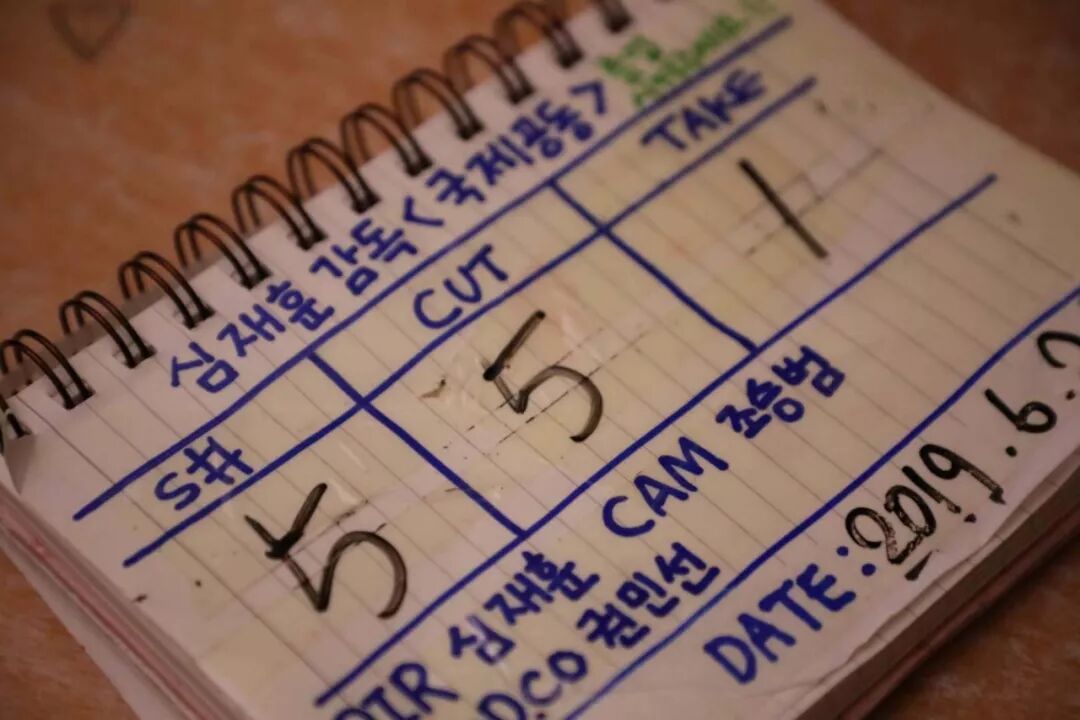 심재훈 감독 <국제공동>
S# CUT TAKE
5 5 1
DIR 심재훈 CAM 조승범
D.CO 권민선
DATE: 2019.6.